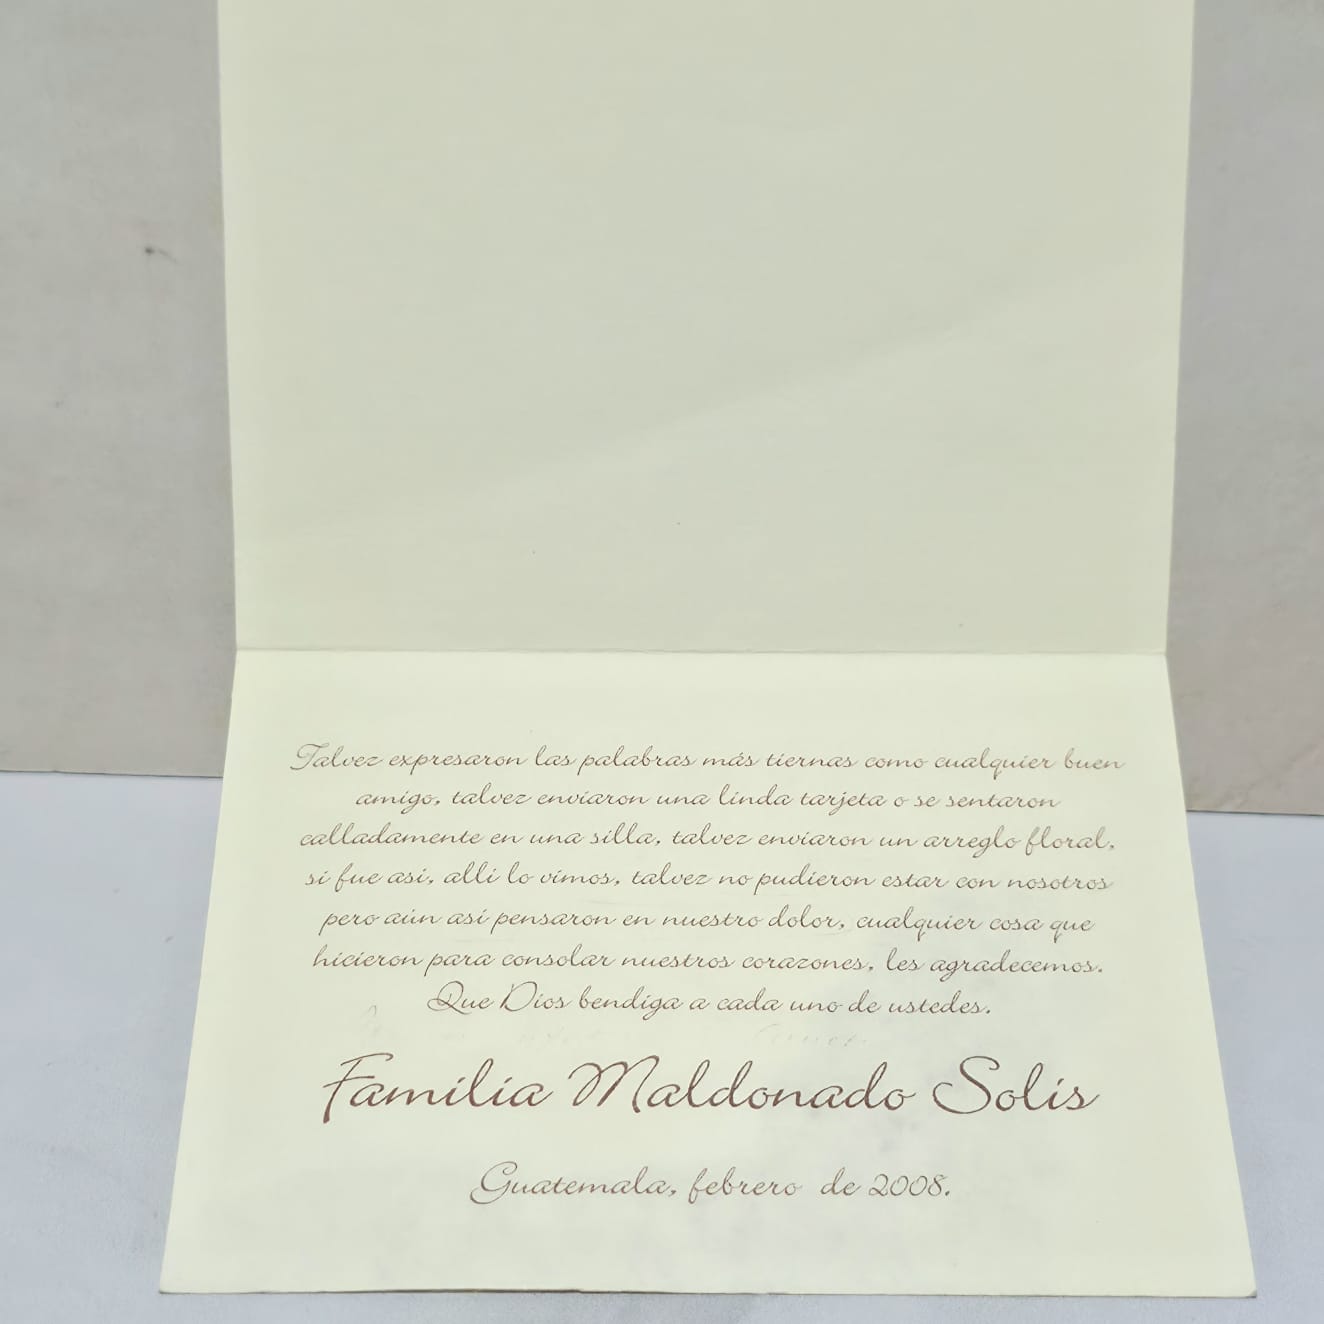 Talvez expresaron las palabras más tiernas como cualquier buen
amigo, talvez enviaron una linda tarjeta o se sentaron
calladamente en una silla, talvez enviaron un arreglo floral,
si fue asi, alli lo vimos, talvez no pudieron estar con nosotros
pero aún así pensaron en nuestro dolor, cualquier cosa que
hicieron para consolar nuestros corazones, les agradecemos.
Que Dios bendiga a cada uno de ustedes.
Familia Maldonado Solis
Guatemala, febrero de 2008.